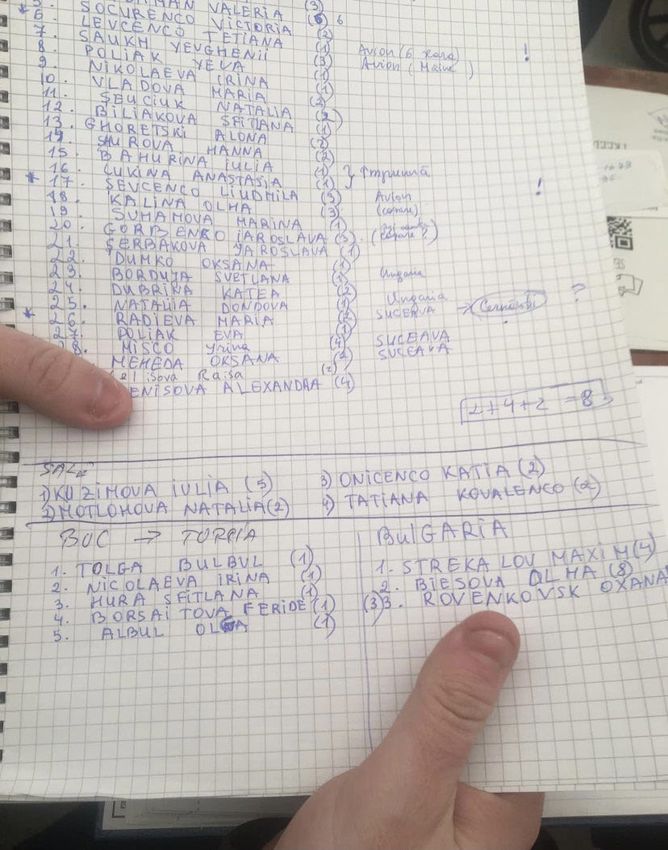 VALERIA (3)
* 6. SOCURENCO VICTORIA (6) 6
7. LEVCENCO TETIANA (2)
8. SAUKH YEVGHENII (1) Avion (6 !
9. POLIAK YEVA (3) Avion (
10. NIKOLAEVA IRINA (1)
11. VLADOVA MARIA (1)
12. SEUCIUK NATALIA (2)
13. BILIAKOVA SFITLANA (2)
14. GHORETSKI ALONA (1)
15. SHUROVA HANNA (2)
16. BAHURINA IULIA (2)
* 17. LUKINA ANASTASIA (1) } Împreună
18. SEVCENCO LIUDMILA (1) !
19. KALINA OLHA (3) Avion
20. SUHAMOVA MARINA (3)
21. GORBENKO IAROSLAVA (3)
22. SERBAKOVA YAROSLAVA (1)
23. DUMKO OKSANA (1)
24. BORDUJA SVETLANA (3) Ungaria
25. DUBRINA KATEA (2)
* 26. NATALIA DONDOVA (2) Ungaria
RADIEVA MARIA (1) SUCEAVA → Cernăuți ?
28. POLIAK EVA (1)
MISCO Yrina (4) SUCEAVA
MEHEDA OKSANA (2) SUCEAVA
Raisa (2)
ENISOVA ALEXANDRA (4)
2+4+2 = 8
SALĂ
1) KUZIMOVA IULIA (5) 3) ONICENCO KATIA (2)
2) MOTLOHOVA NATALIA (2) 4) TATIANA KOVALENCO (2)
BUC → TURCIA
1. TOLGA BULBUL (1)
2. NICOLAEVA IRINA (1)
3. HURA SFITLANA (1)
4. BORSAITOVA FERIDE (1)
5. ALBUL OLGA (1)
BulGARIA
1. STREKALOV MAXIM (4)
2. BIESOVA OLHA (8)
(3) 3. ROVENKOVSK OXANA